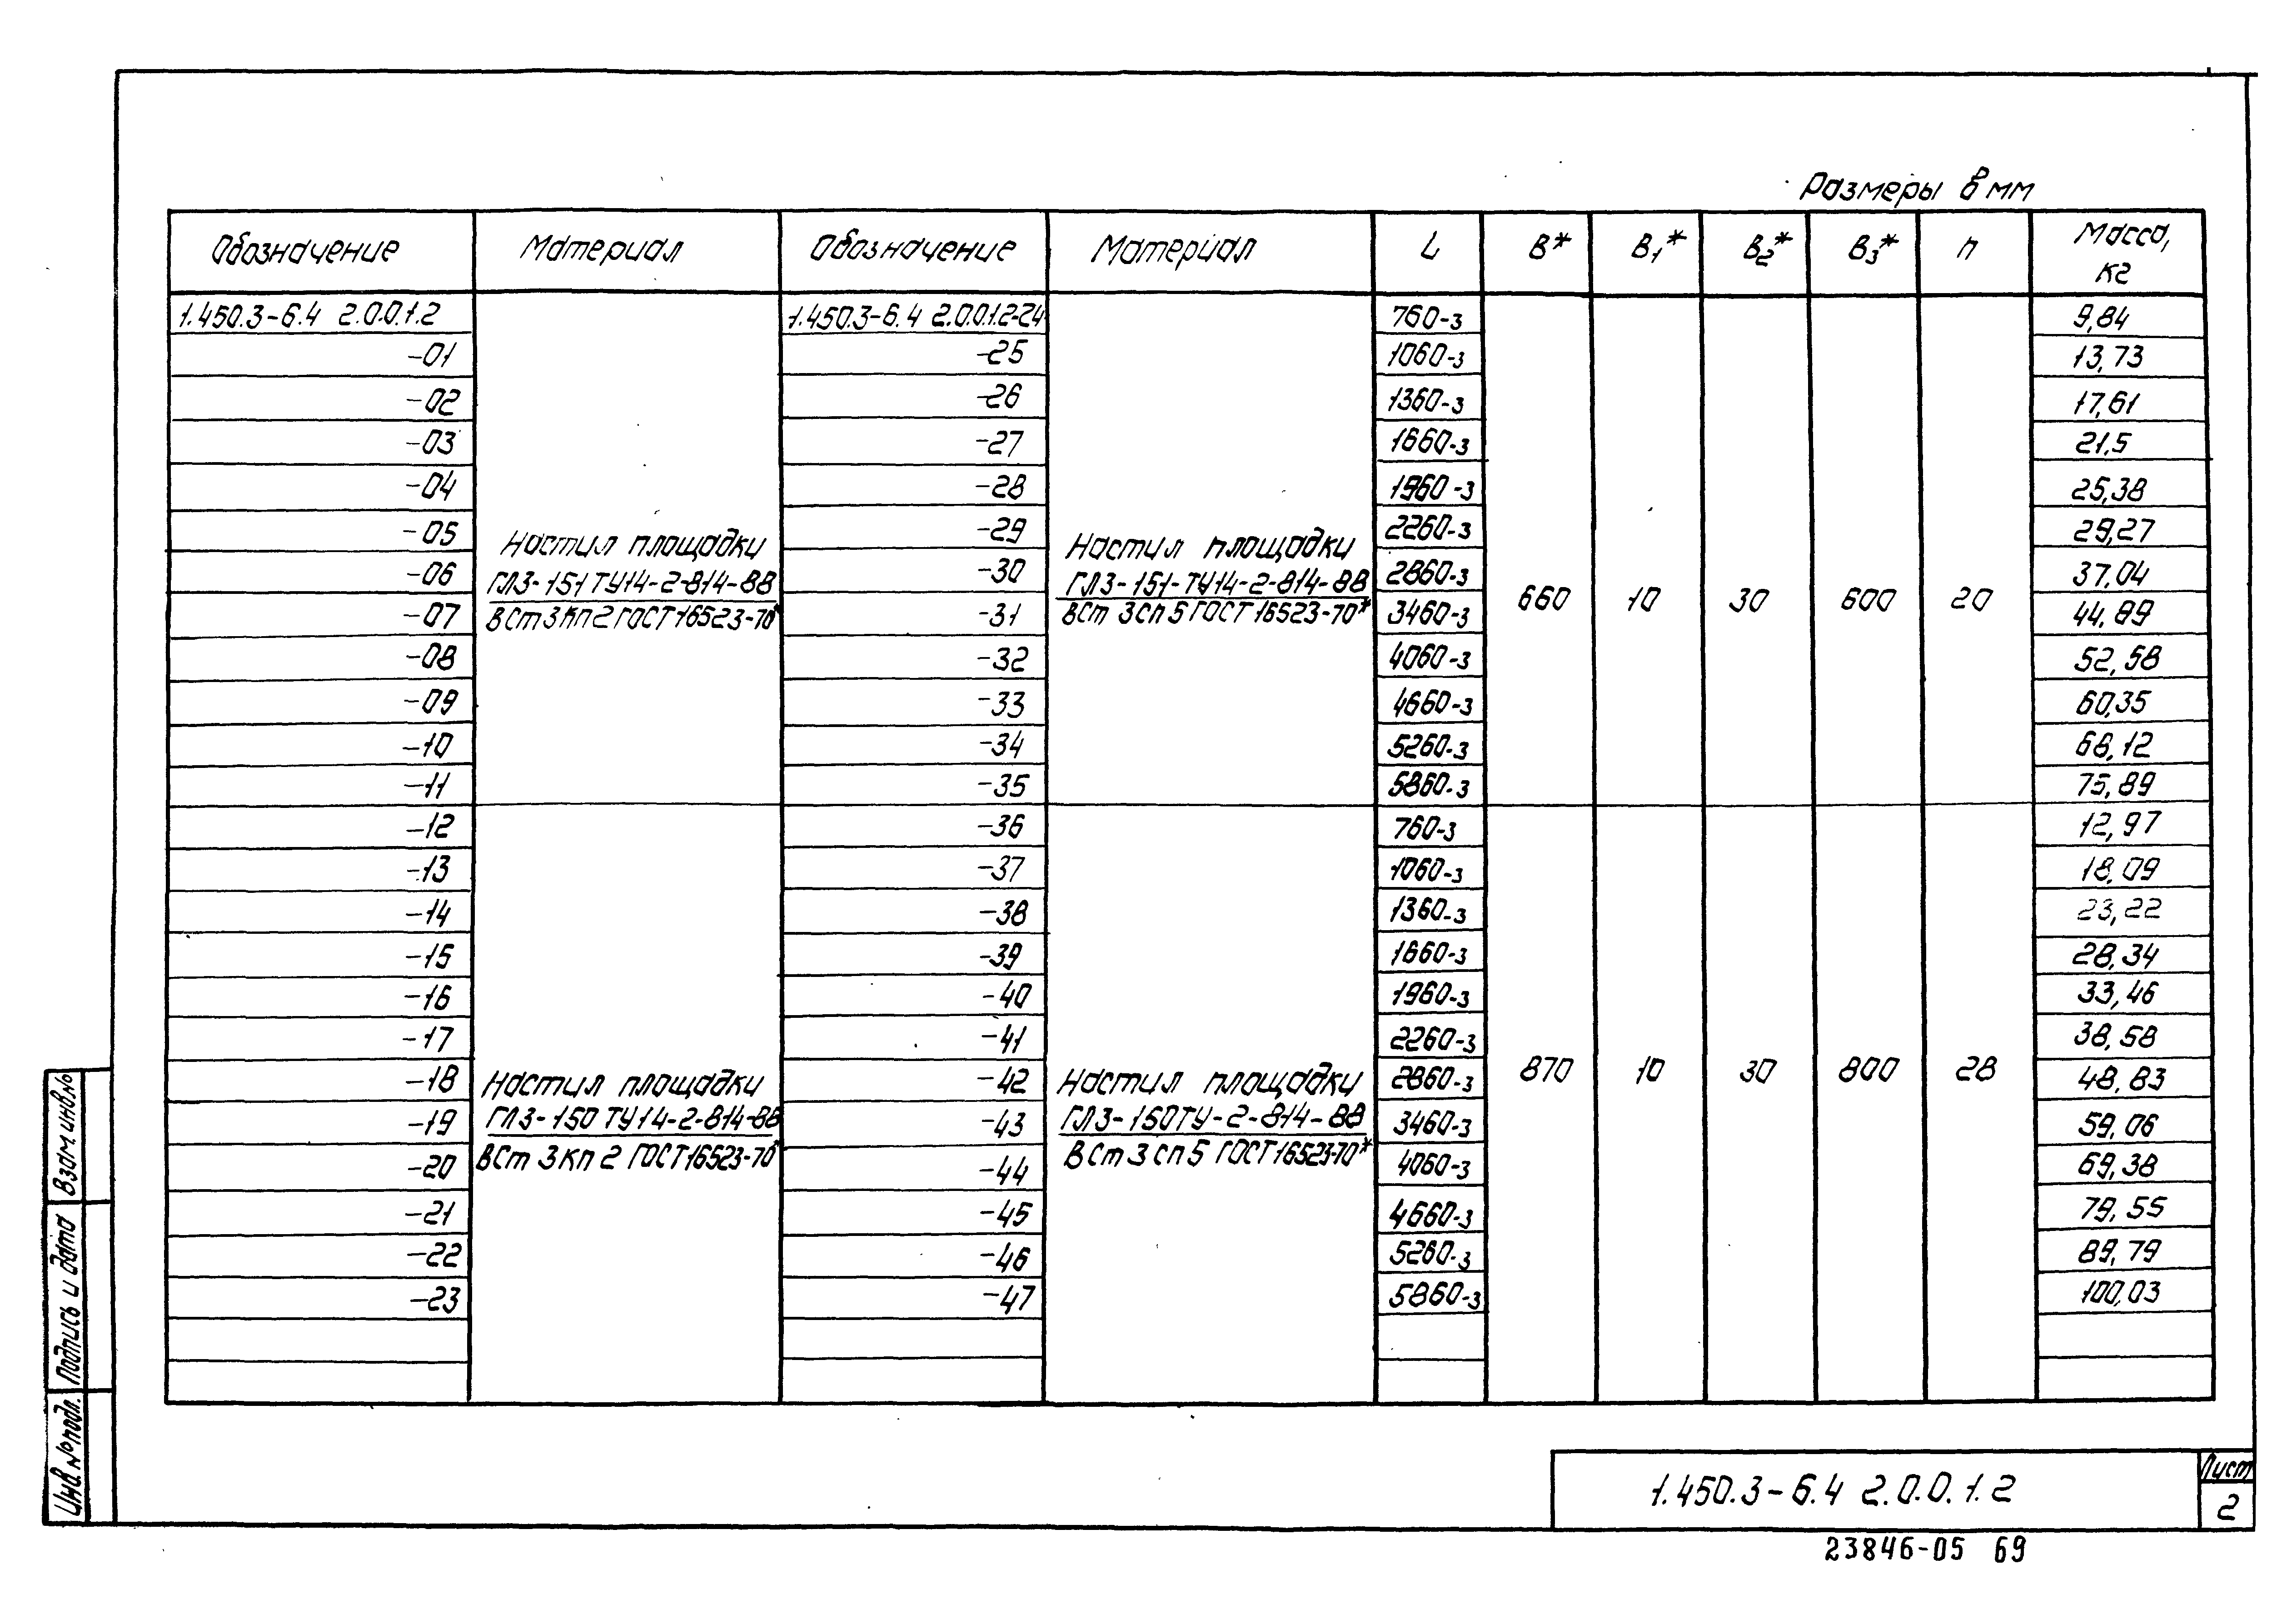 Размеры в мм
Обозначение Материал Обозначение Материал L B* B1* B2* B3* n Масса, кг
1.450.3-6.4 2.0.0.1.2 1.450.3-6.4 2.0.0.1.2-24 760-3 9,84
-01 -25 1060-3 13,73
-02 -26 1360-3 17,61
-03 -27 1660-3 21,5
-04 -28 1960-3 25,38
-05 -29 2260-3 29,27
Настил площадки Настил площадки
-06 ГЛЗ-151 ТУ14-2-814-88 -30 ГЛЗ-151-ТУ14-2-814-88 2860-3 37,04
660 10 30 600 20
-07 ВСт3кп2 ГОСТ16523-70* -31 ВСт 3сп5 ГОСТ 16523-70* 3460-3 44,89
-08 -32 4060-3 52,58
-09 -33 4660-3 60,35
-10 -34 5260-3 68,12
-11 -35 5860-3 75,89
-12 -36 760-3 12,97
-13 -37 1060-3 18,09
-14 -38 1360-3 23,22
-15 -39 1660-3 28,34
-16 -40 1960-3 33,46
-17 -41 2260-3 38,58
-18 Настил площадки -42 Настил площадки 2860-3 870 10 30 800 28 48,83
-19 ГЛЗ-150 ТУ14-2-814-88 -43 ГЛЗ-150ТУ-2-814-88 3460-3 59,06
-20 ВСт 3кп2 ГОСТ16523-70* -44 ВСт3сп5 ГОСТ16523-70* 4060-3 69,38
-21 -45 4660-3 79,55
-22 -46 5260-3 89,79
-23 -47 5860-3 100,03
Взам.инв.№
Подпись и дата
Инв.№подл.
1.450.3-6.4 2.0.0.1.2
Лист
2
23846-05 69